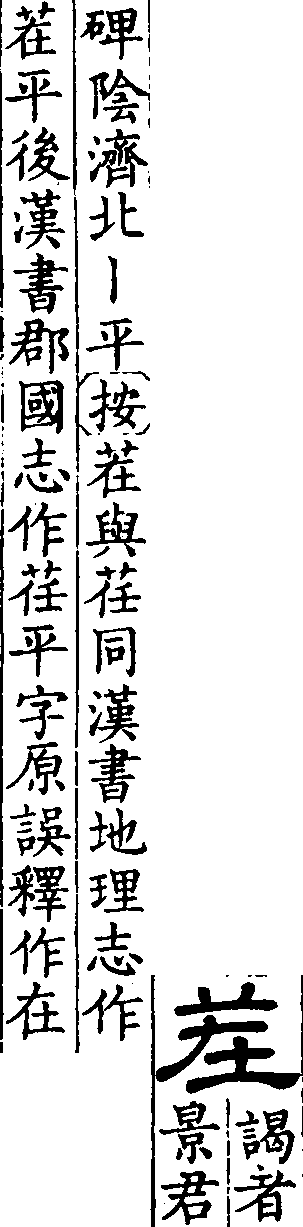 茬
謁者
景君
碑陰濟北丨平按茬與茌同漢書地理志作
茬平後漢書郡國志作茌平字原誤釋作在